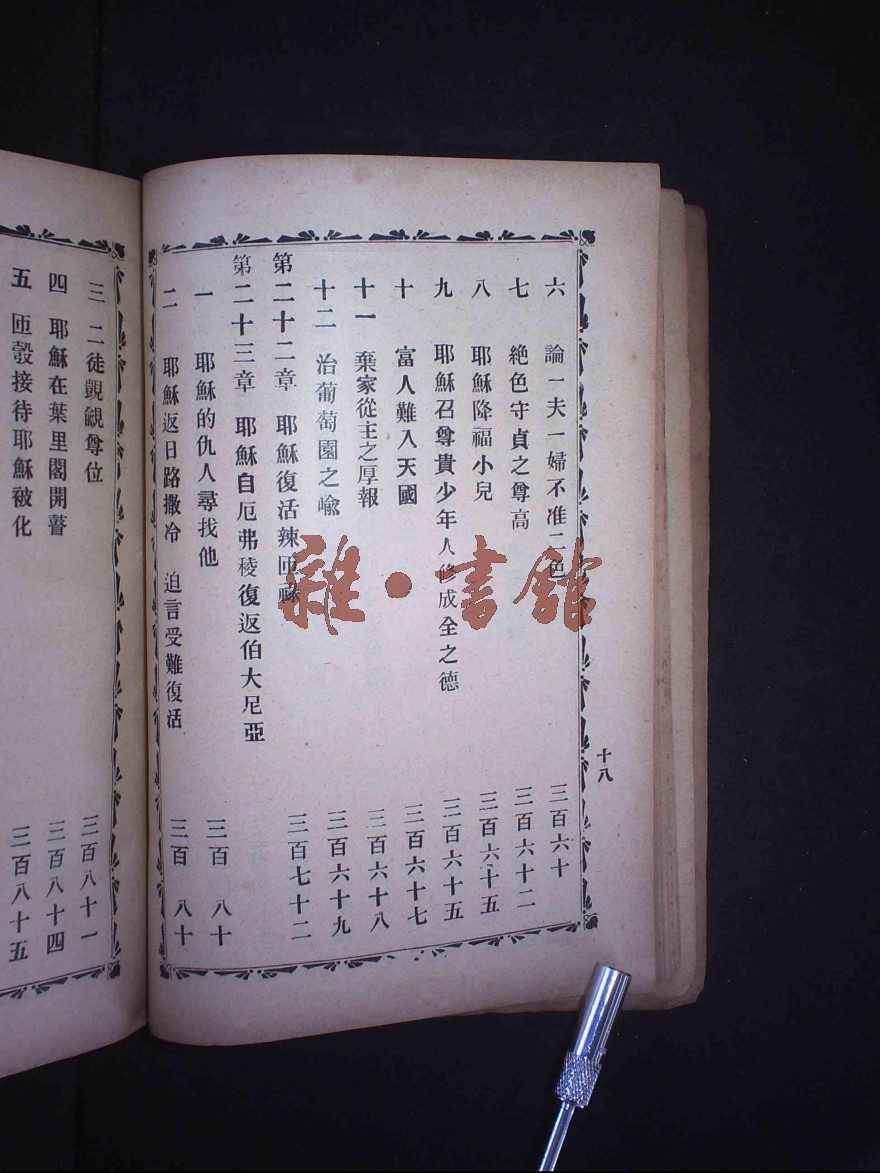 六 論一夫一婦不准二色 三百六十
七 絶色守貞之尊高 三百六十二
八 耶穌降福小兒 三百六十五
九 耶穌召尊貴少年人修成全之德 三百六十五
十 富人難入天國 三百六十七
十一 棄家從主之厚報 三百六十八
十二 治葡萄園之喻 三百六十九
第二十二章 耶穌復活辣匝祿 三百七十二
第二十三章 耶穌自厄弗稜復返伯大尼亞
一 耶穌的仇人尋找他 三百八十
二 耶穌返日路撒冷 迫言受難復活 三百八十
十八
三 二徒覬覦尊位 三百八十一
四 耶穌在葉里閣開瞽 三百八十四
五 匝彀接待耶穌被化 三百八十五
雜·書館